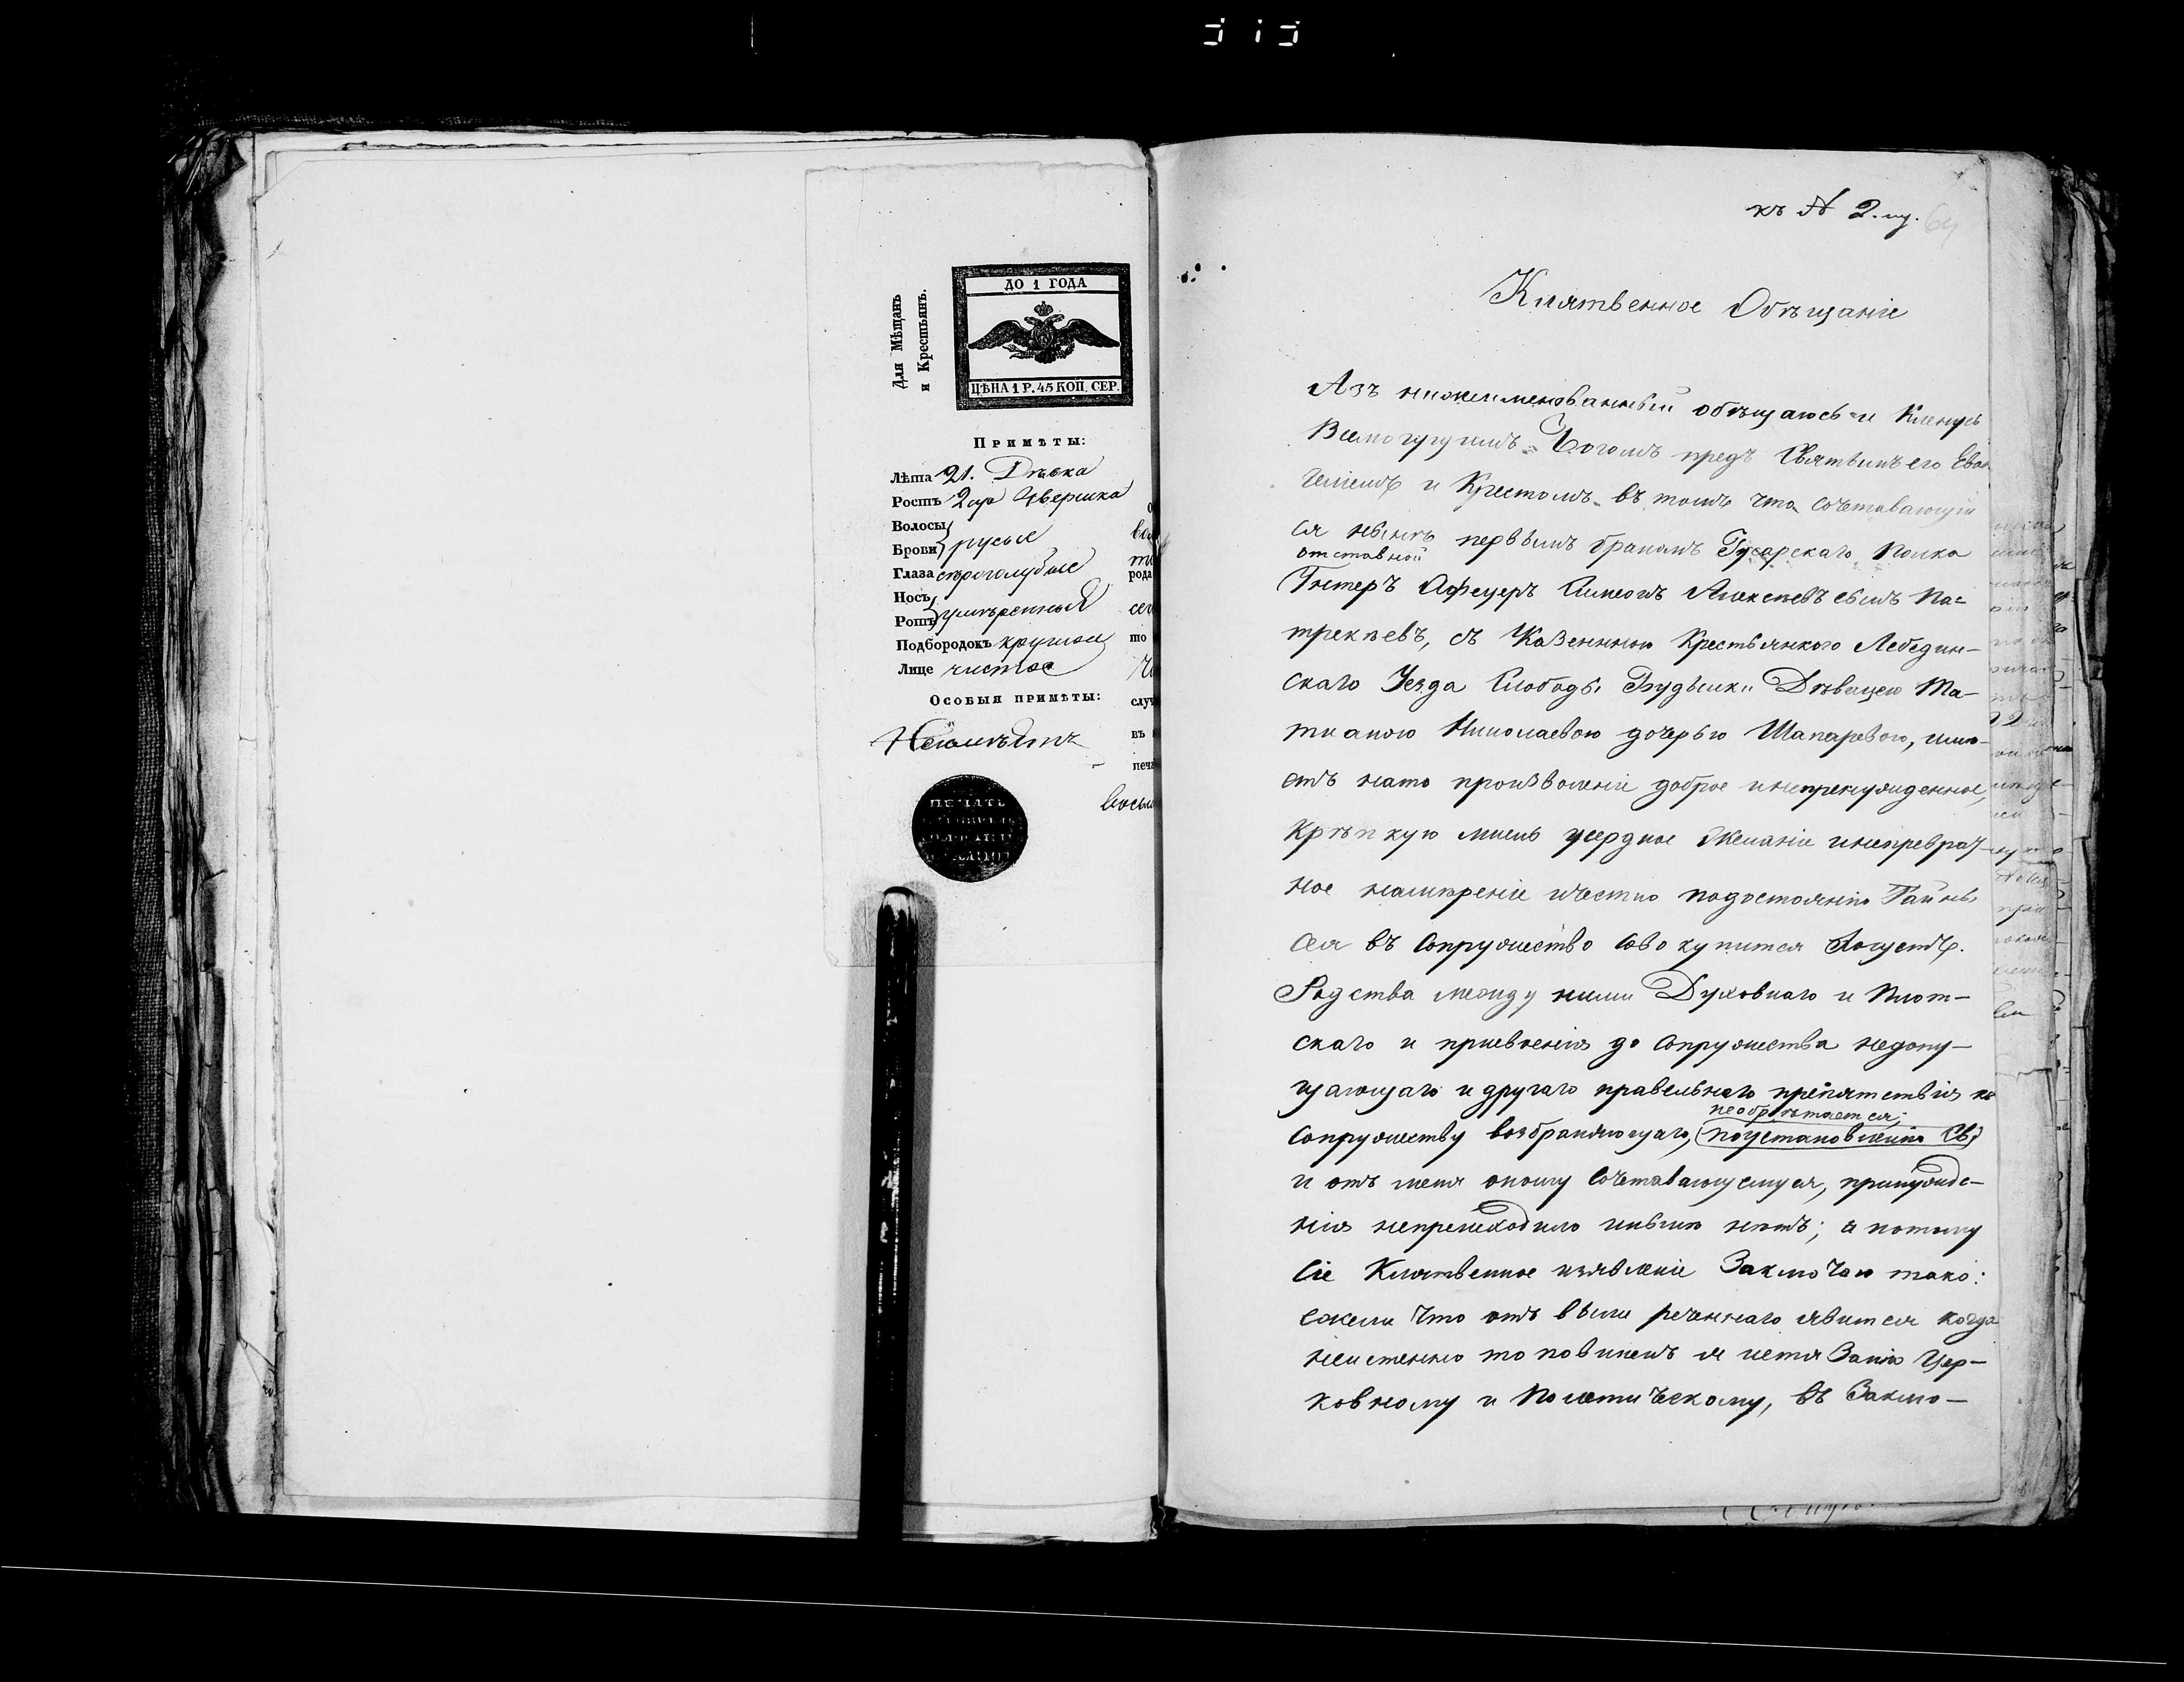 Для Мѣщанъ
и Крестьянъ.
ДО 1 ГОДА
ЦѢНА 1 Р. 45 КОП. СЕР.
Примѣты:
Лѣта 21. Дѣвка
Ростъ 2 ар вершка
Волосы
Брови } русые
Глаза сѣроголубые
Носъ
Ротъ } умѣренный
Подбородокъ круглой
Лице чистое
Особыя примѣты:
ПЕЧАТЬ
рода
то
случ
въ
печа
восьм
къ № 2.му.
Клятвенное Обѣщаніе
Азъ нижеименованный обѣщаюсь и Кленусь
Всемогущимъ Богомъ предъ Святымъ его Еван
геліемъ и Крестомъ въ томъ что сочетавающій
ся нынѣ первымъ бракомъ Гусарскаго Полка
отставной
Унтеръ Афецеръ Симеонъ Алексѣевъ сынъ Па=
трекѣевъ, съ Казенною Крестьянкою Лебедин-
скаго Уезда Слободы Будылки Дѣвицею Та-
тианою Николаевою дочерью Шапаревою, имѣ-
етъ нато произволеніе доброе инепренужденное,
Крѣпкую мысль усердное Желаніе инепреврат-
ное намѣреніе ичестно подостоянію Тайны
сея въ Сопружество Совокупится
Родства между ними Духовнаго и Плот-
скаго и присвоенія до Сопружества недопу-
щающаго и другаго правельнаго препятствія къ
необрѣтается;
Сопружеству возбраняющаго, (поустановленію Св)
и отъ меня оному Сочетавающемуся, принужде-
нія непроисходило инынѣ нѣтъ; а потому
Сіе Клятвенное изявленіе Заключаю тако:
ежели что отъ выше реченнаго явится когда
неистенно то повиненъ я истязанію Цер-
ковному и Политическому, въ Заклю-